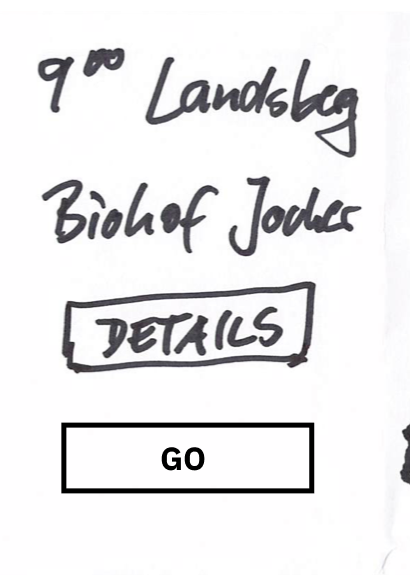 9⁰⁰ Landsbeg
Biohof Jocher
DETAILS
GO